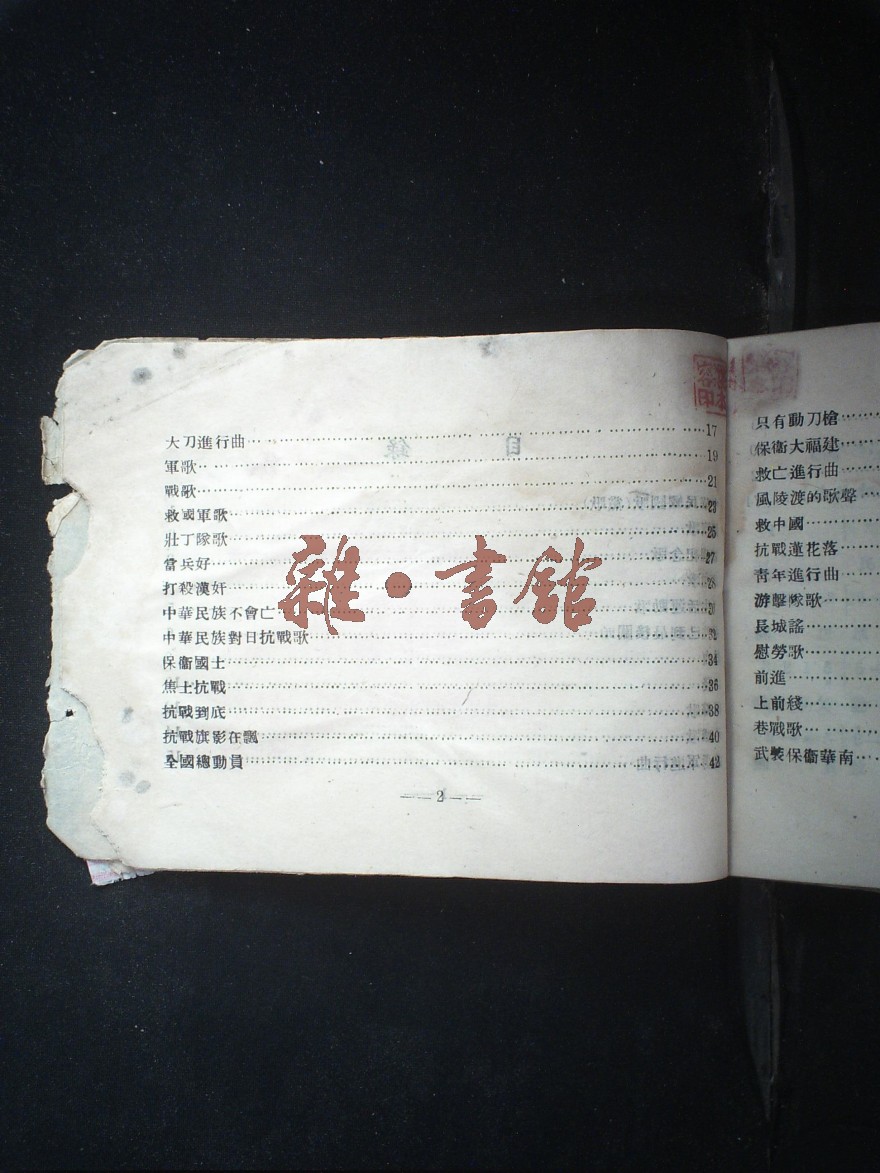 大刀進行曲……17
軍歌……19
戰歌……21
救國軍歌……23
壯丁隊歌……25
當兵好……27
打殺漢奸……28
中華民族不會亡……31
中華民族對日抗戰歌……32
保衞國土……34
焦土抗戰……36
抗戰到底……38
抗戰旗影在飄……40
全國總動員……42
——2——
只有動刀槍……
保衞大福建……
救亡進行曲……
風陵渡的歌聲……
救中國……
抗戰蓮花落……
靑年進行曲……
游擊隊歌……
長城謠……
慰勞歌……
前進……
上前綫……
巷戰歌……
武裝保衞華南……
雜·書館